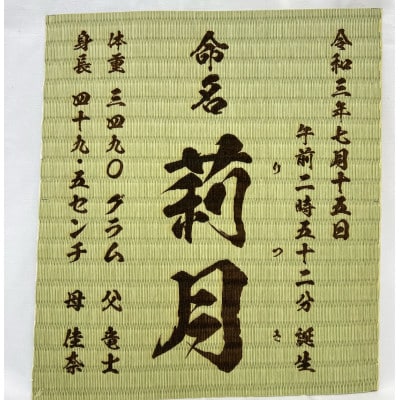 令和三年七月十五日
午前二時五十二分 誕生
命名
莉月
りつき
体重 三四九〇グラム 父 竜士
身長 四十九・五センチ 母 佳奈